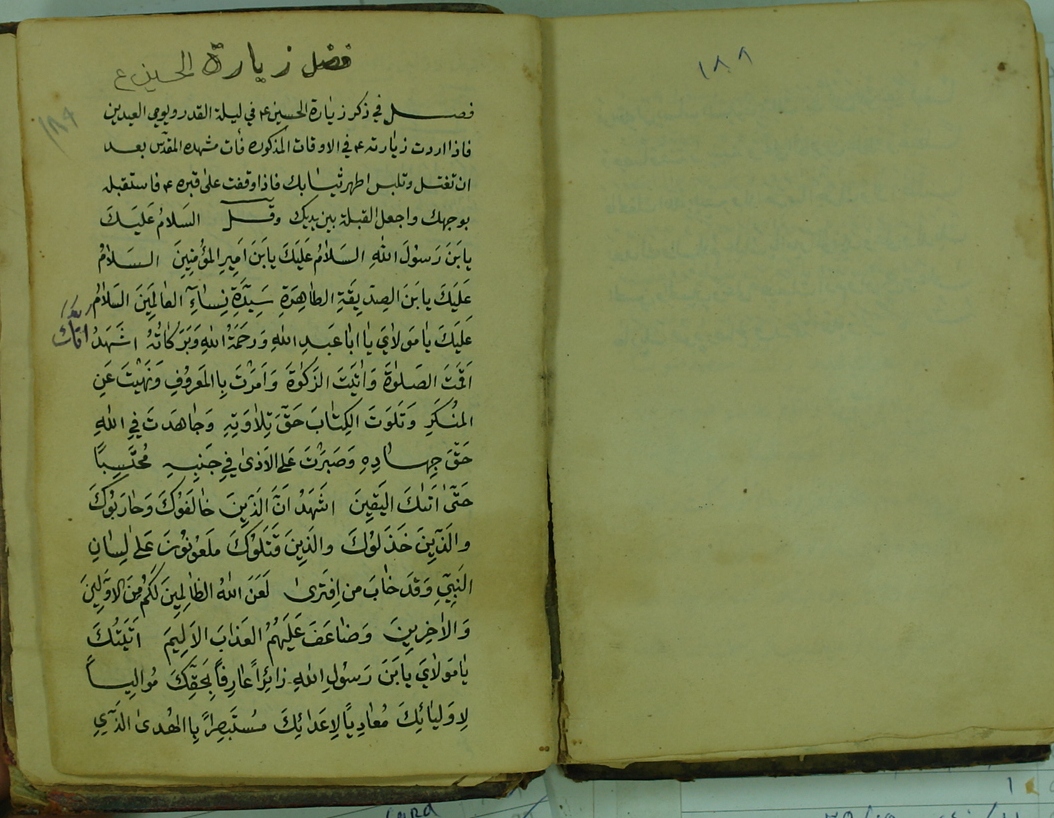 ١٨٨
فضل زيارة الحسين ع
١٨٩
فصل في ذكر زيارة الحسين ع في ليلة القدر ويومي العيدين
فاذا اردت زيارته ع في الاوقات المذكورة فأت مشهده المقدس بعد
ان تغتسل وتلبس اطهر ثيابك فاذا وقفت على قبره ع فاستقبله
بوجهك واجعل القبلة بين يديك وقل السَلامُ عَلَيكَ
يابنَ رَسولِ اللهِ السَلامُ عَلَيكَ يابنَ اَميرِ المؤمِنينَ السَلامُ
عَلَيكَ يابنَ الصِديقَةِ الطاهِرَةِ سَيِدَةِ نِساءِ العالَمينَ السَلامُ
عَلَيكَ يامَولايَ يا ابا عَبدِ اللهِ وَرَحمَةُ اللهِ وَبَرَكاتُهُ اشهَدُ انّك
اَقَمتَ الصَلوةَ وَاتَيتَ الزَكوةَ وَاَمَرتَ بِالمَعروفِ وَنَهَيتَ عَنِ
المُنكَرِ وَتَلَوتَ الكِتابَ حَقَّ تِلاوَتِهِ وَجاهَدتَ فِي اللهِ
حَقَّ جِهادِهِ وَصَبَرتَ عَلَى الاَذى في جَنبِهِ مُحتَسِبًا
حَتّى اَتيكَ اليَقينَ اشهَدُ اَنَّ الَذينَ خالَفوكَ وَحارَبوكَ
والَذينَ خَذَلوكَ والَذينَ قَتَلوكَ مَلعونونَ عَلى لِسانِ
النَبِيِّ وَقَد خابَ من اِفتَرى لَعَنَ اللهُ الظالِمينَ لَكُم مِنَ الاوَلينَ
وَالاخِرينَ وَضاعَفَ عَلَيهُمُ العَذابَ الاَليمَ اَتَيتُكَ
يامَولايَ يابنَ رَسولِ اللهِ زائِراً عارِفاً بِحَقِّكَ مُوالِياً
لِاَولِيائِكَ مُعادِياً لِاَعدائِكَ مُستَبصِراً بِالهُدى الَذي